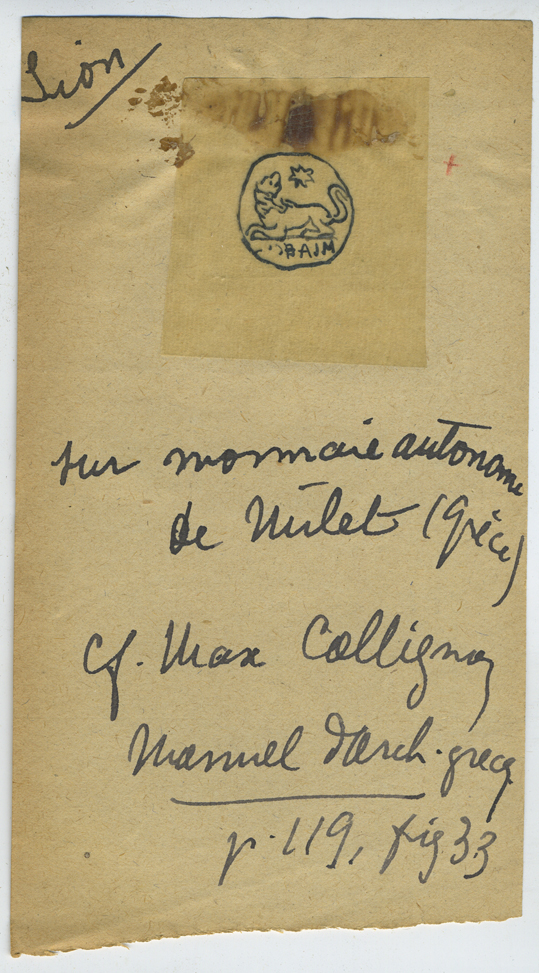 Lion
BAJM
sur monnaie autonome
de Milet (Grèce)
cf. Max Collignon
Manuel d'Arch. grecq
p. 119, fig 33